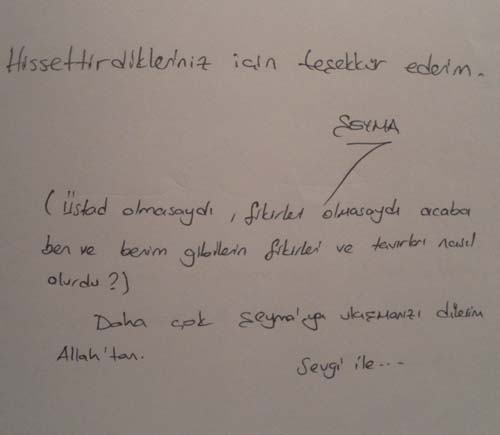 Hissettirdikleriniz için teşekkür ederim.
ŞEYMA
(Üstad olmasaydı, fikirleri olmasaydı acaba
ben ve benim gibilerin fikirleri ve tavırları nasıl
olurdu?)
Daha çok Şeyma'ya ulaşmanızı dilerim
Allah'tan.
Sevgi ile...